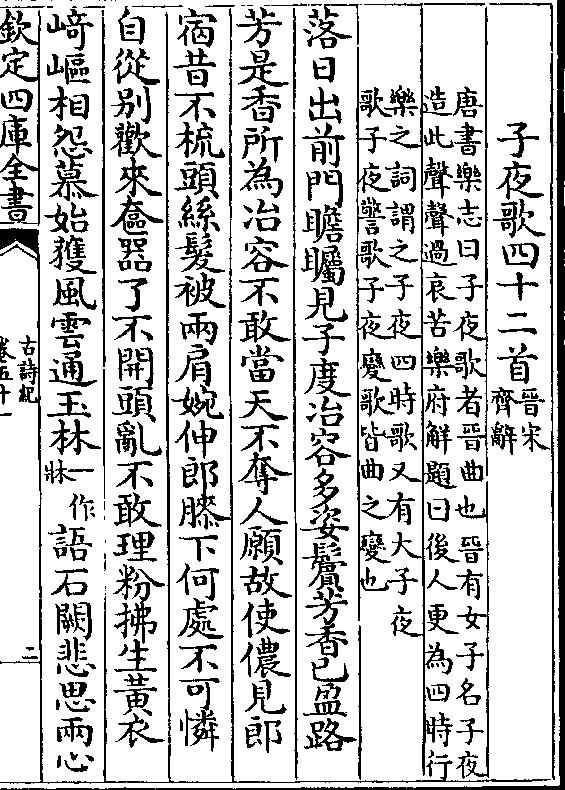 子夜歌四十二首 晉宋齊辭
唐書樂志曰子夜歌者晉曲也晉有女子名子夜
造此聲聲過哀苦樂府解題曰後人更為四時行
樂之詞謂之子夜四時歌又有大子夜
歌子夜警歌子夜變歌皆曲之變也
落日出前門瞻矚見子度冶容多姿鬢芳香已盈路
芳是香所為冶容不敢當天不奪人願故使儂見郎
宿昔不梳頭絲髮被兩肩婉伸郎膝下何處不可憐
自從别歡來奩器了不開頭亂不敢理粉拂生黃衣
崎嶇相怨慕始獲風雲通玉林一作牀語石闕悲思兩心
欽定四庫全書
古詩紀
卷五十一
二